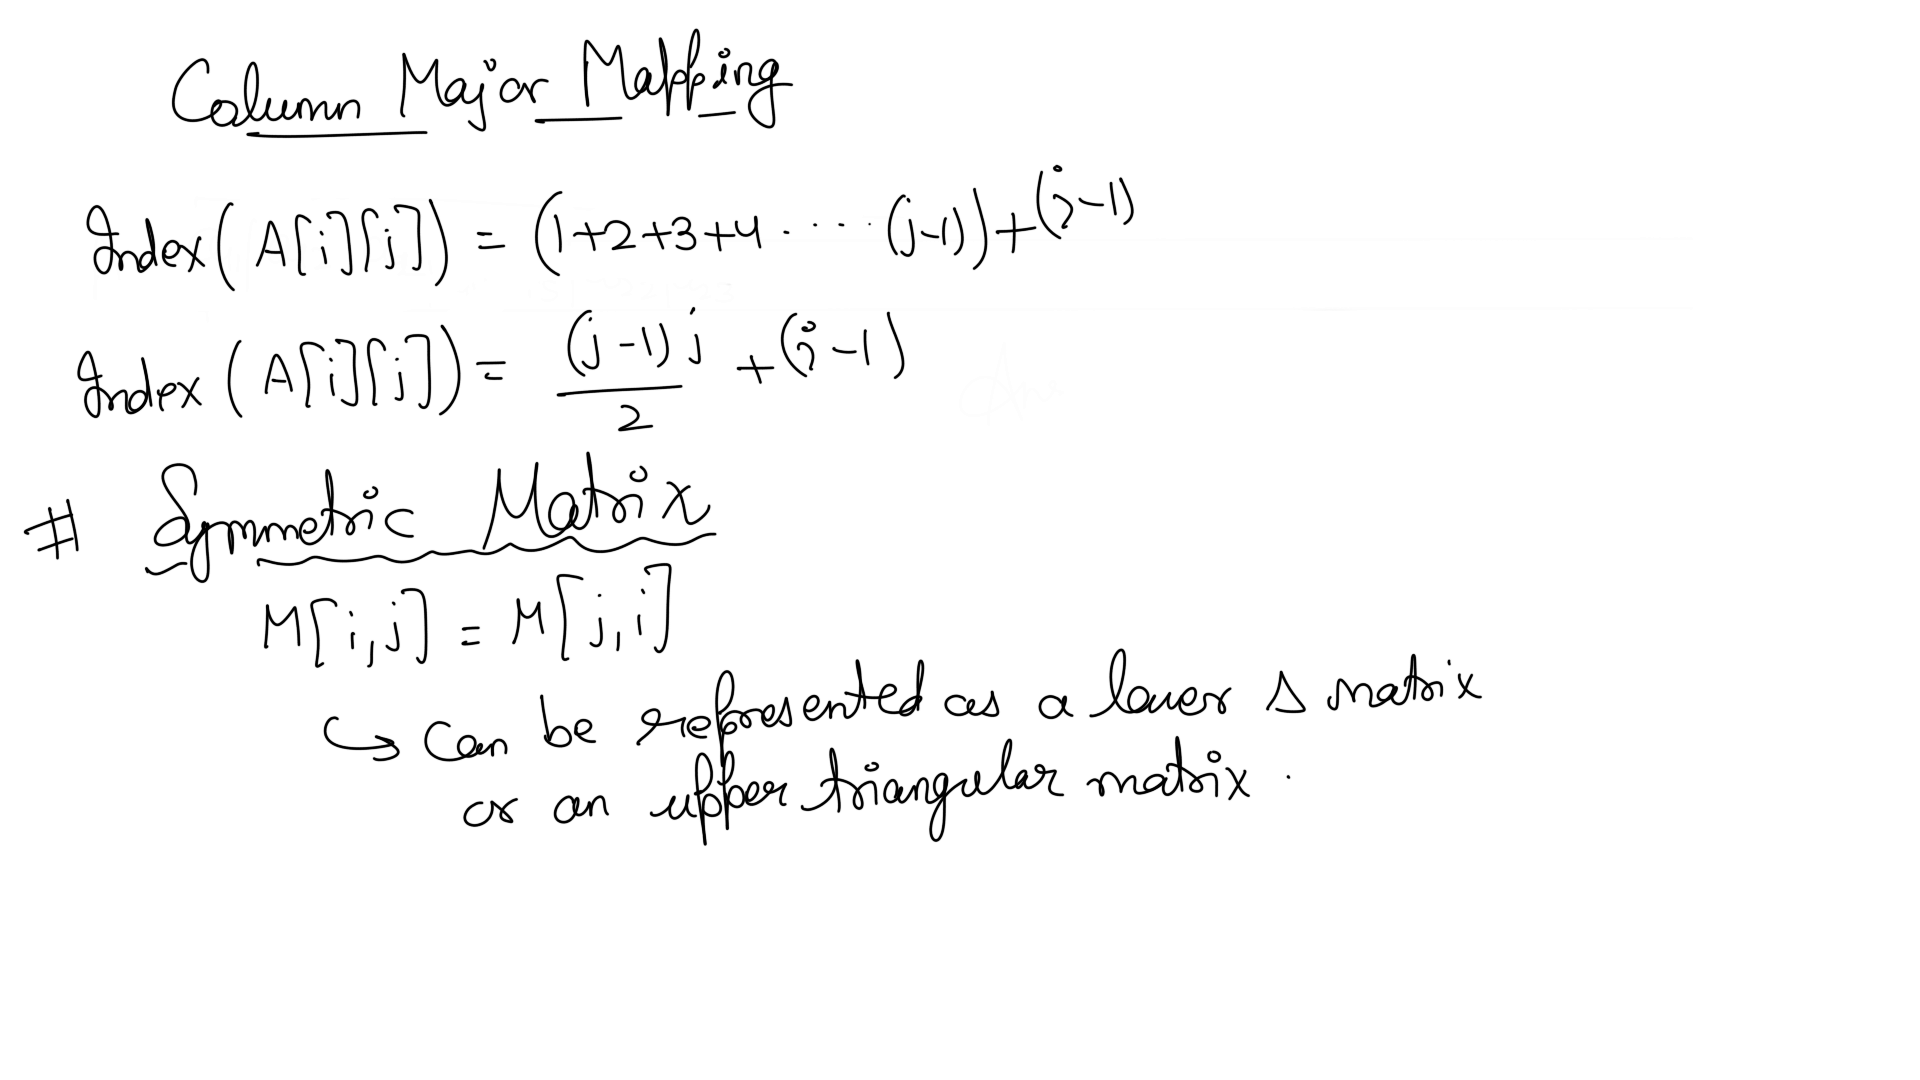 Column Major Mapping
Index(A[i][j]) = (1+2+3+4 ..... (j-1))+(i-1)
Index (A[i][j]) = (j-1) j / 2 + (i-1)
# Symmetric Matrix
M[i,j] = M[j,i]
↪ Can be represented as a lower Δ matrix
or an upper triangular matrix.